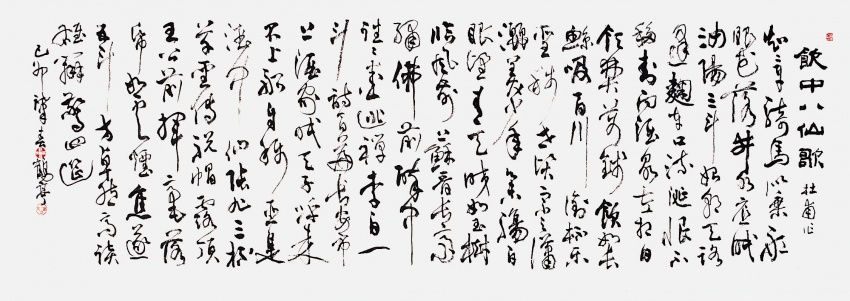 飲中八仙歌 杜甫作
知章騎馬似乘船
眼花落井水底眠
汝陽三斗始朝天路
逢麴車口流涎恨不
移封向酒泉左相日
興費萬錢飲如長
鯨吸百川銜杯樂
聖稱世賢宗之瀟
灑美少年舉觴白
眼望青天皎如玉樹
臨風前蘇晉長齋
繡佛前醉中
往往愛逃禪李白一
斗詩百篇長安市
上酒家眠天子呼來
不上船自稱臣是
酒中仙張旭三杯
草聖傳脫帽露頂
王公前揮毫落
紙如雲煙焦遂
五斗方卓然高談
雄辯驚四筵
己卯